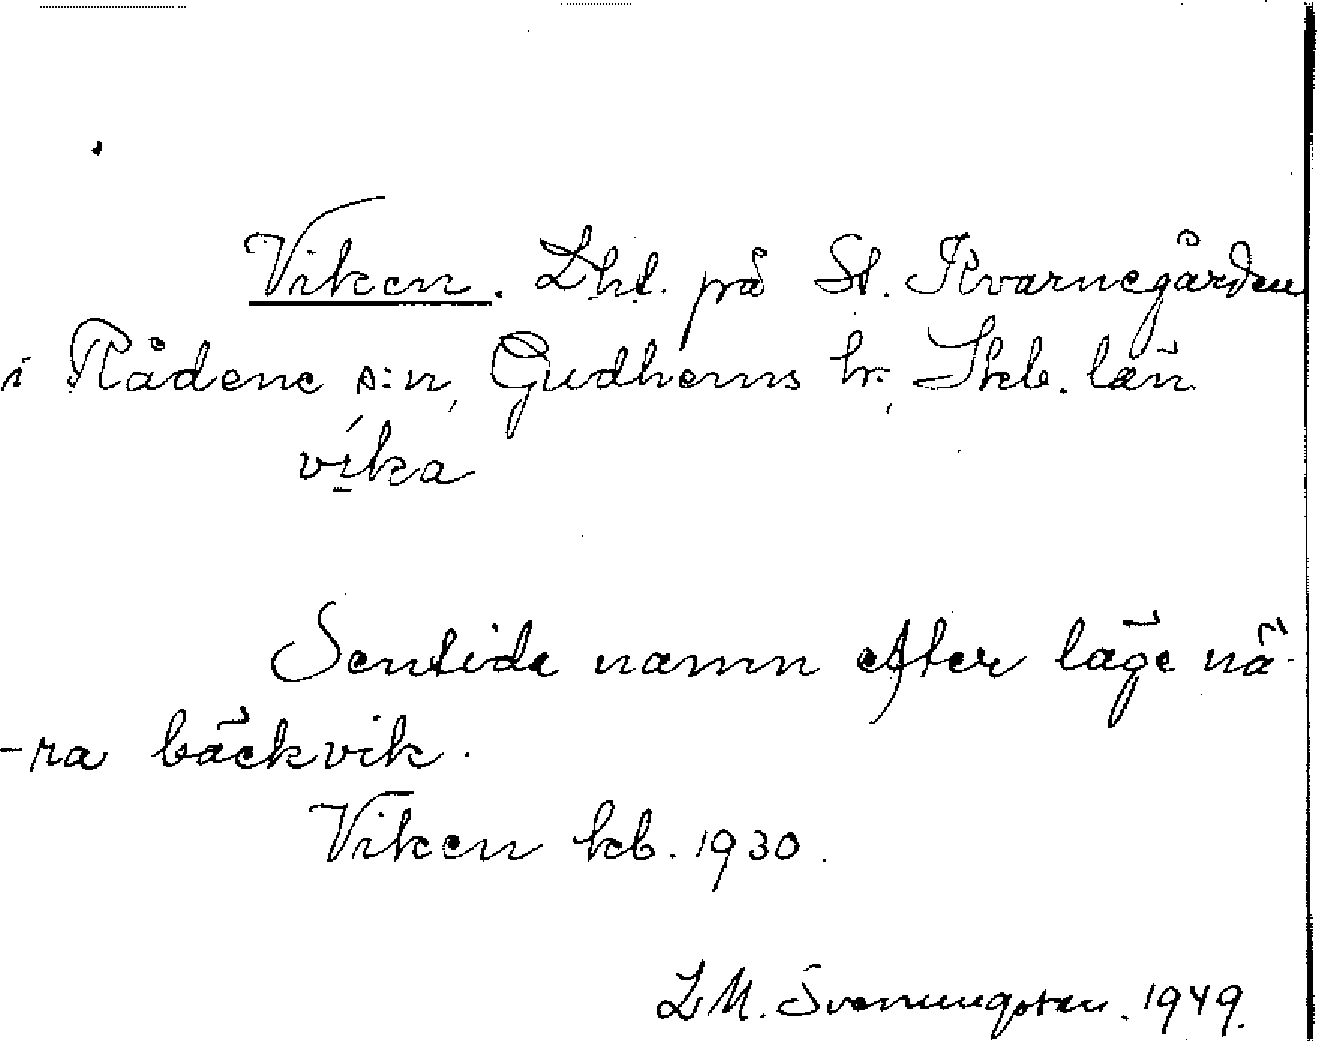 Viken. Lht. på St. Kvarnegården
i Rådene s:n, Gudhems hr, Skb. län
víka
Sentida namn efter läge nä-
-ra bäckvik.
Viken kb. 1930.
L M. Svenungsson. 1949.